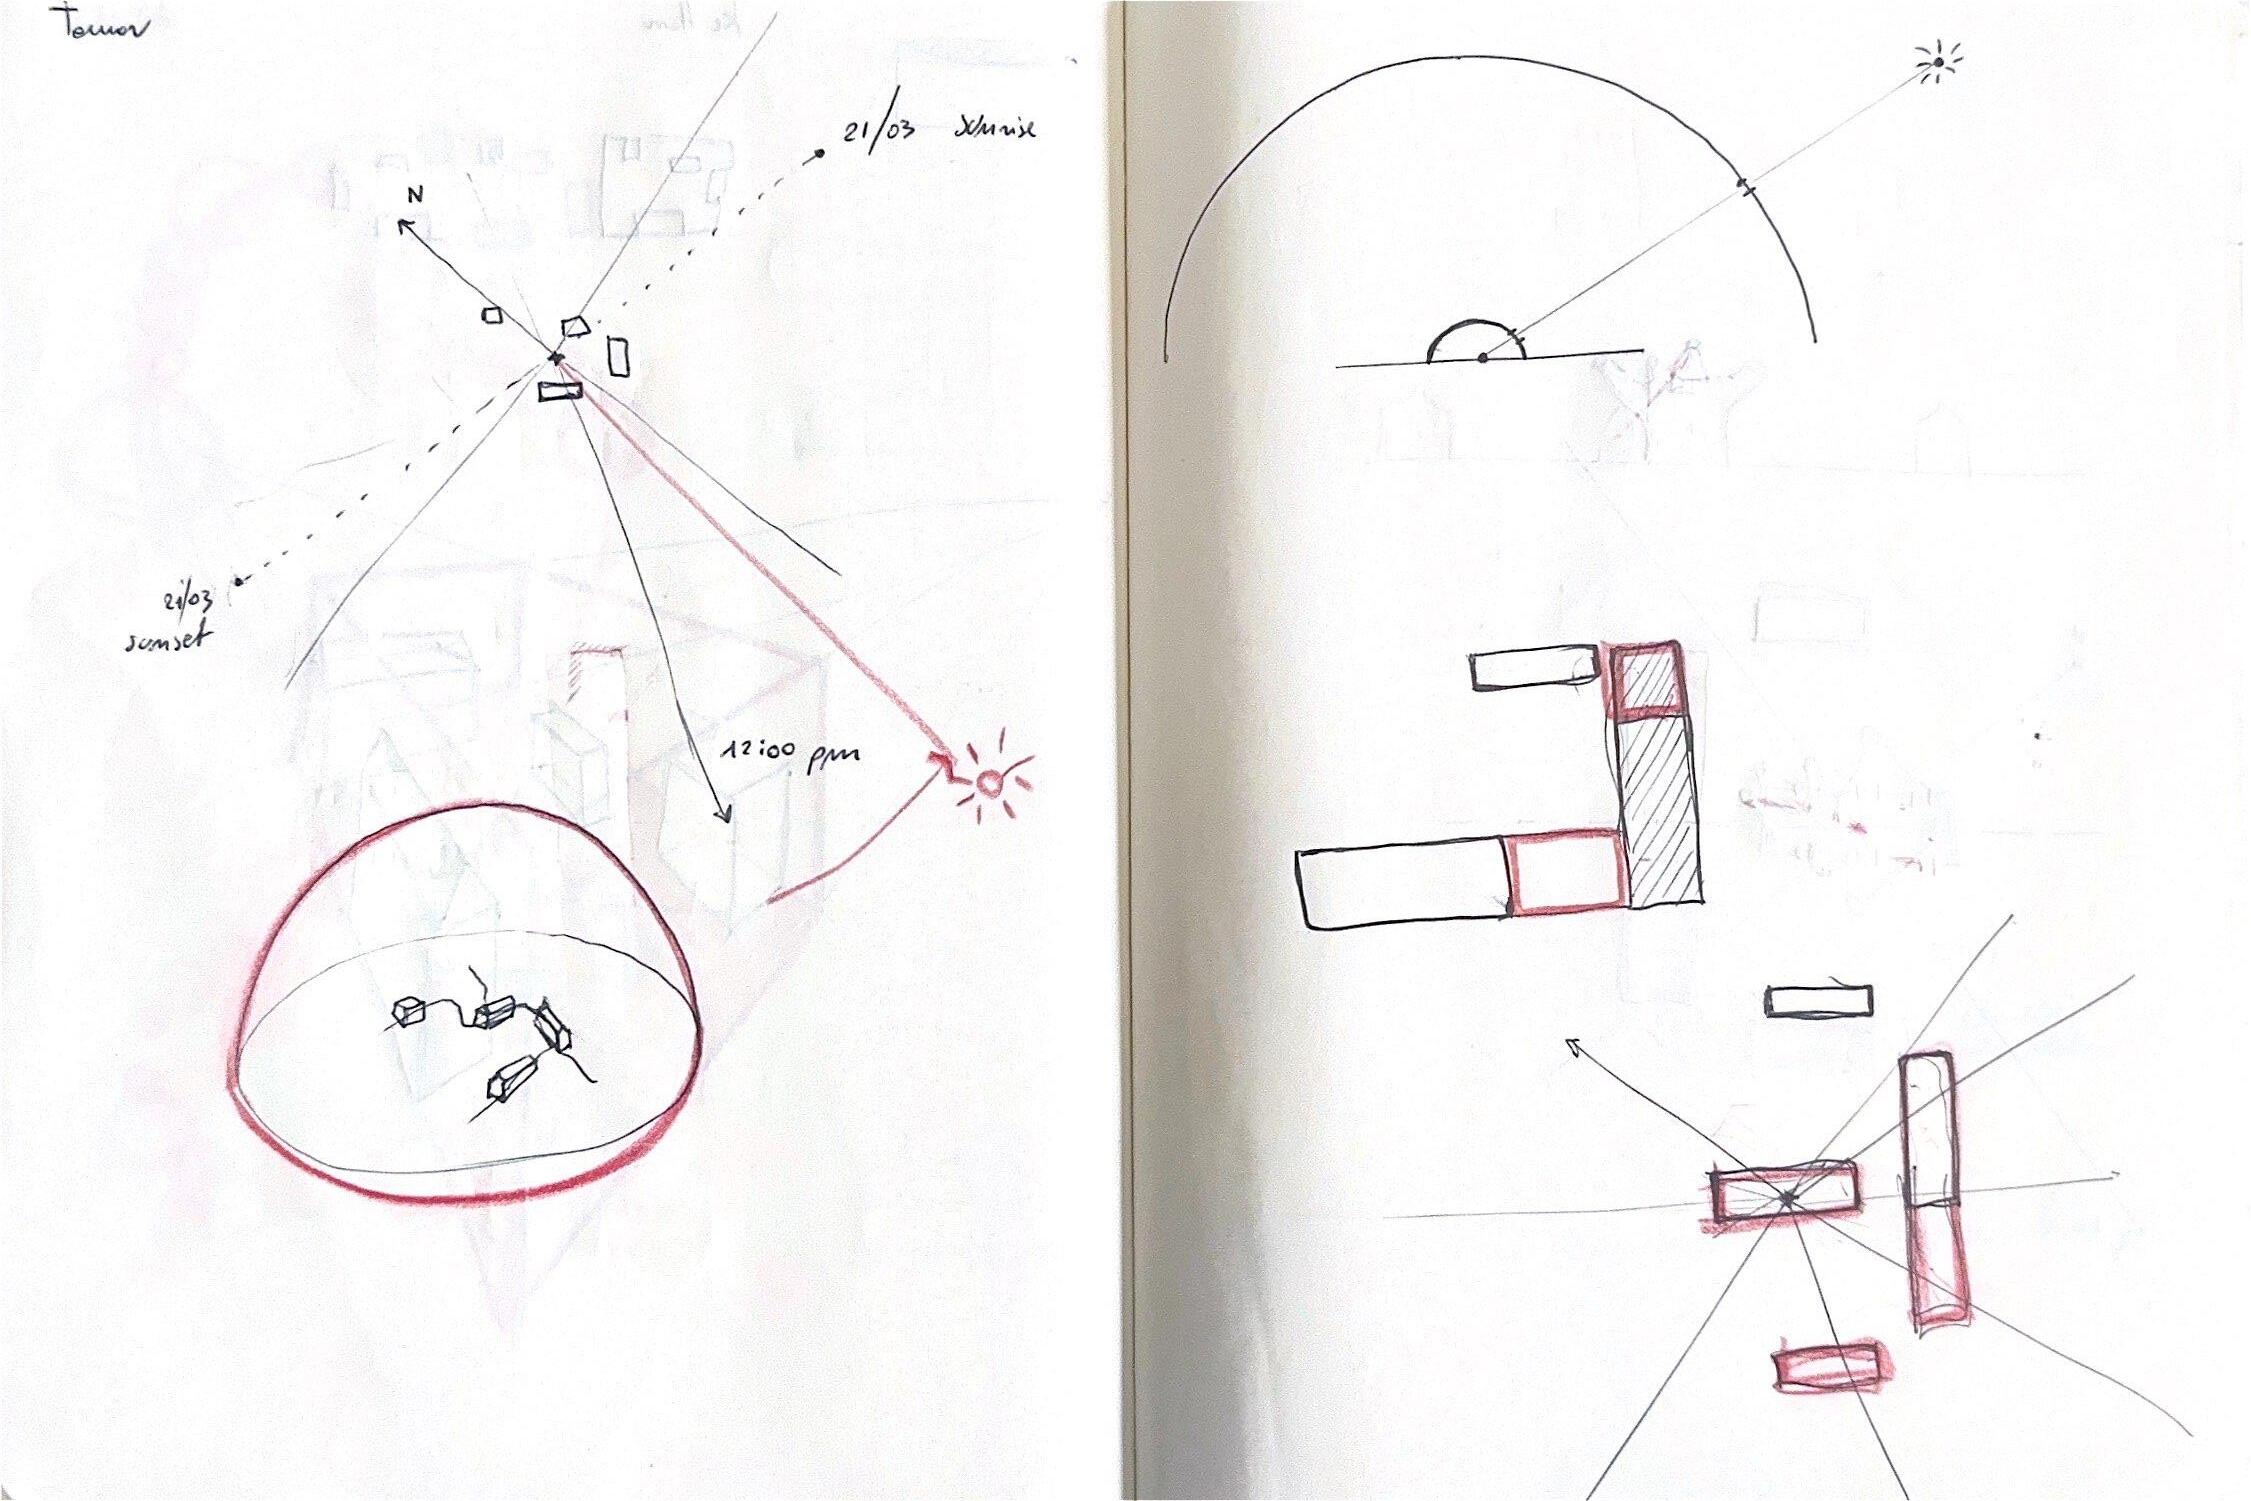 21/03 sunrise
N
21/03
sunset
12:00 pm